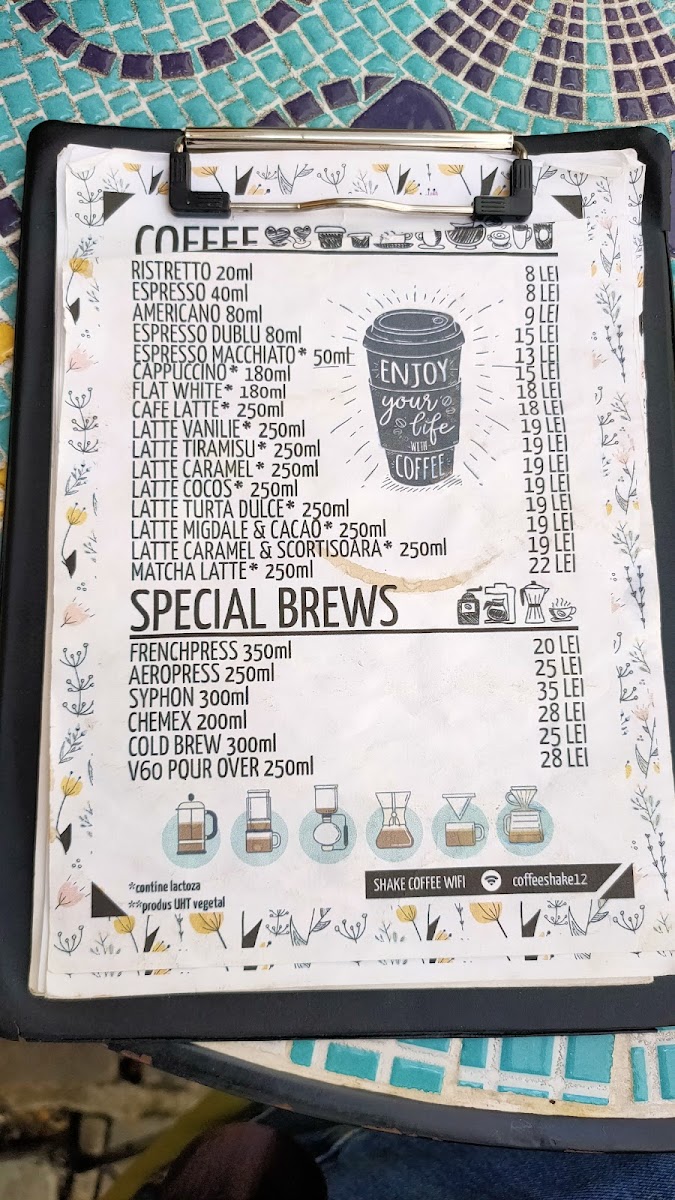 COFFEE
RISTRETTO 20ml 8 LEI
ESPRESSO 40ml 8 LEI
AMERICANO 80ml 9 LEI
ESPRESSO DUBLU 80ml 15 LEI
ESPRESSO MACCHIATO* 50ml 13 LEI
CAPPUCCINO* 180ml 15 LEI
FLAT WHITE* 180ml 18 LEI
CAFE LATTE* 250ml 18 LEI
LATTE VANILIE* 250ml 19 LEI
LATTE TIRAMISU* 250ml 19 LEI
LATTE CARAMEL* 250ml 19 LEI
LATTE COCOS* 250ml 19 LEI
LATTE TURTA DULCE* 250ml 19 LEI
LATTE MIGDALE & CACAO* 250ml 19 LEI
LATTE CARAMEL & SCORTISOARA* 250ml 19 LEI
MATCHA LATTE* 250ml 22 LEI
ENJOY
your
life
WITH
COFFEE
SPECIAL BREWS
FRENCHPRESS 350ml 20 LEI
AEROPRESS 250ml 25 LEI
SYPHON 300ml 35 LEI
CHEMEX 200ml 28 LEI
COLD BREW 300ml 25 LEI
V60 POUR OVER 250ml 28 LEI
*contine lactoza
**produs UHT vegetal
SHAKE COFFEE WIFI coffeeshake12